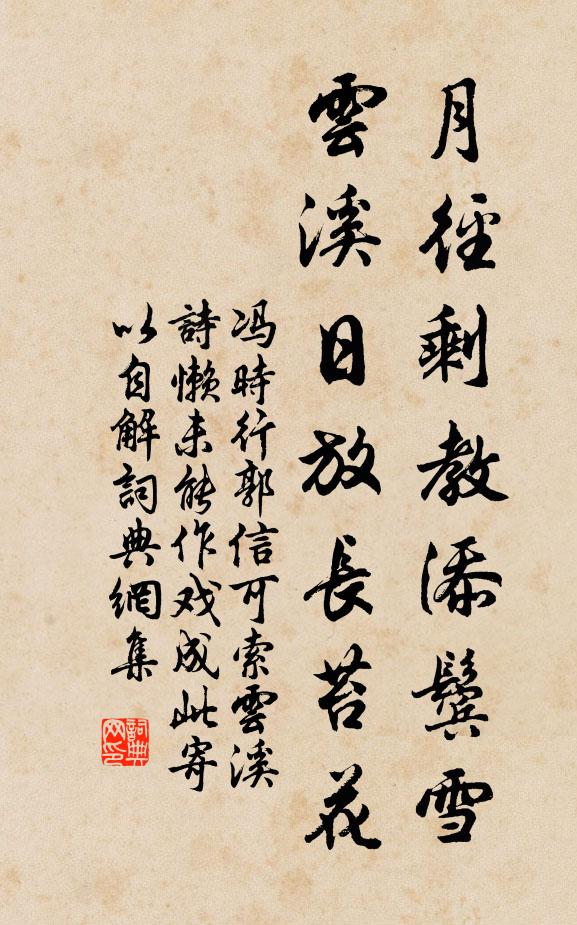 月徑剩教添鬢雪
雲溪日放長苔花
冯時行郭信可索雲溪
詩懒未能作戏成此寄
以自解詞典網集
詞典网印